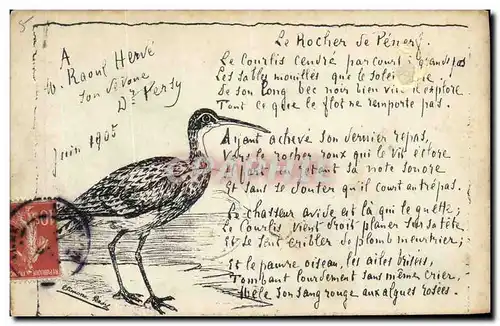 A
M. Raoul Hervé
son dévoué
Dr Versy
Juin 1905
Le Rocher de Pénerf.
Le Courlis cendré parcourt à grands pas
Les sables mouillés que le soleil
De son long bec noir bien vite il explore
Tout ce que le flot ne remporte pas.
Ayant achevé son dernier repas,
Vers le rocher roux qui le vit éclore
Il fuit en jetant sa note sonore
Et sans se douter qu'il court au trépas.
Le chasseur avide est là qui le guette;
Le Courlis vient droit planer sur sa tête
Et se fait cribler de plomb meurtrier;
Et le pauvre oiseau, les ailes brisées,
Tombant lourdement sans même crier,
Mêle son sang rouge aux algues rosées.